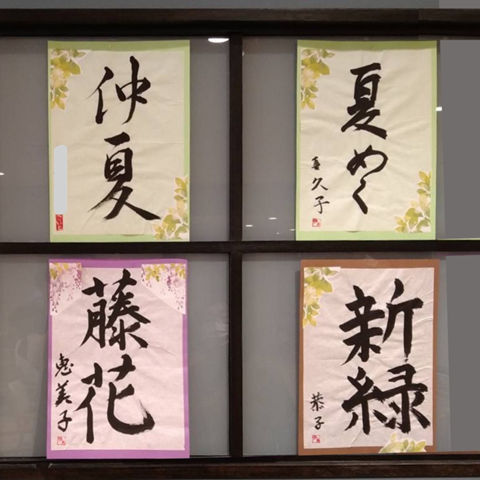 仲夏
夏めく
喜久子
藤花
恵美子
新緑
恭子